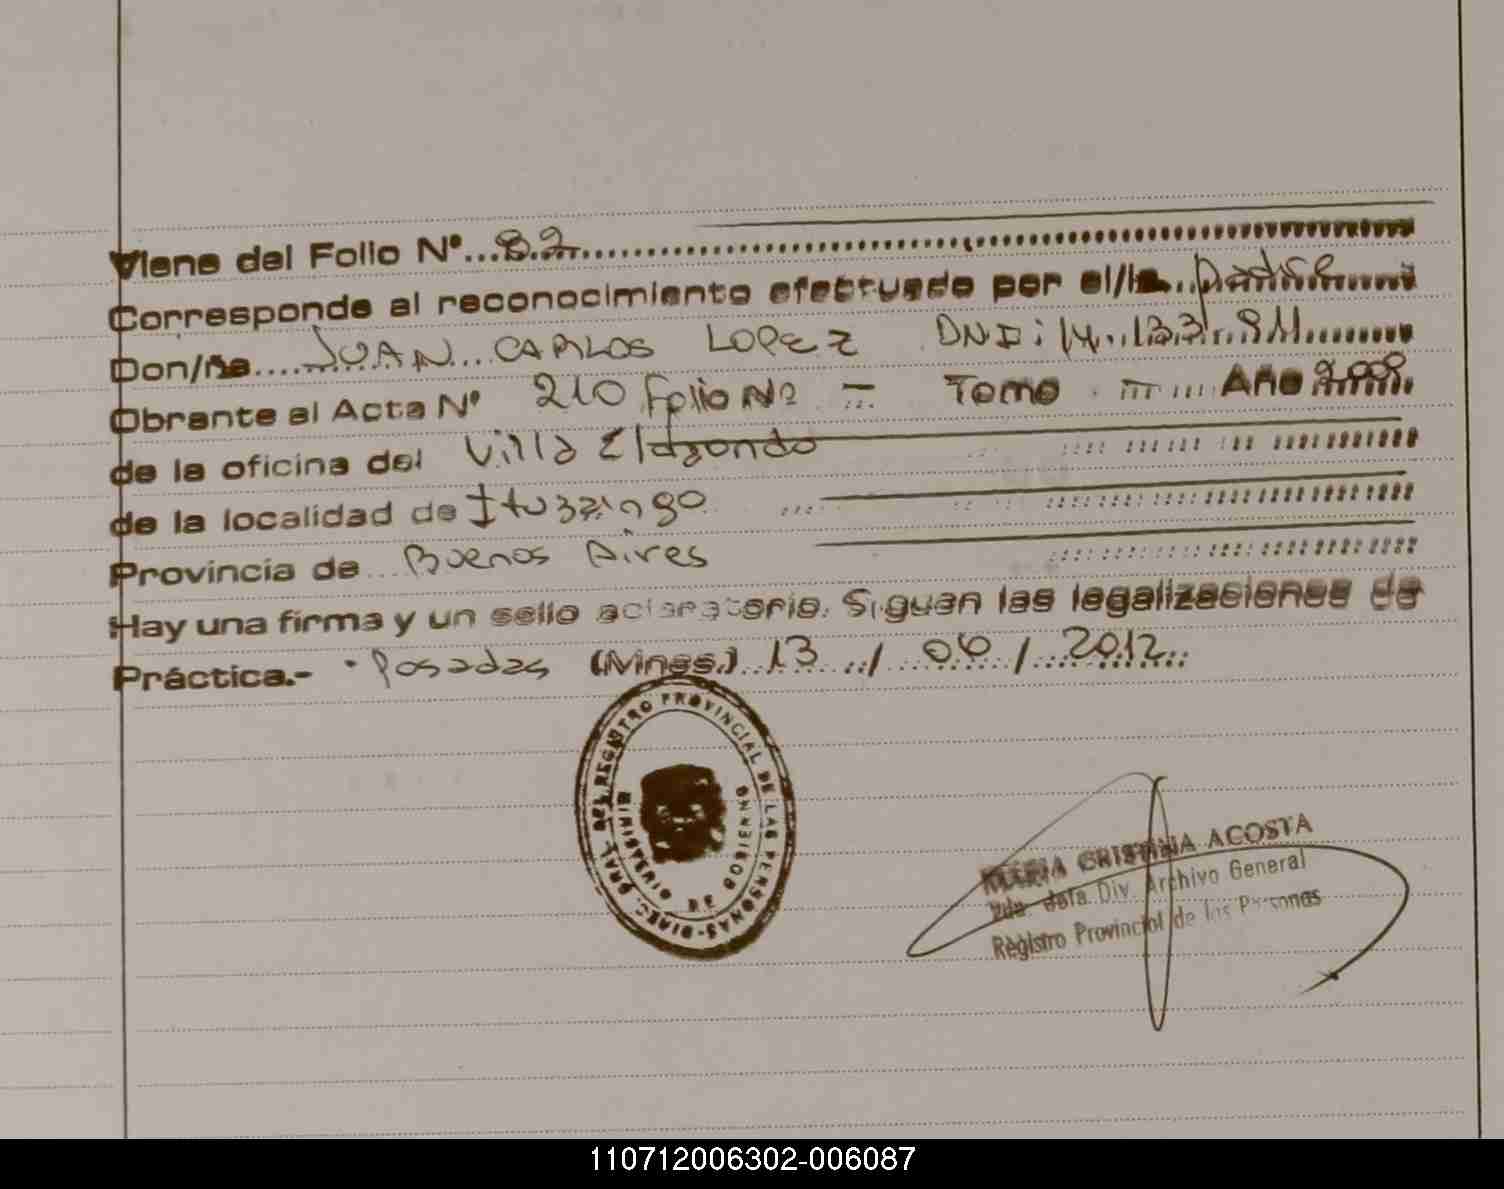 Viene del Folio Nº...82...
Corresponde al reconocimiento efectuado por el/la..padre...
Don/ña.....JUAN...CARLOS LOPEZ DNI: 14..133.911.........
Obrante al Acta Nº 210 Folio Nº — Tomo — Año 2.008
de la oficina del Villa Elazondo
de la localidad de Ituzaingo
Provincia de...Buenos Aires
Hay una firma y un sello aclaratorio. Siguen las legalizaciones de
Práctica.- Posadas (Mnes.) 13 / 06 / 2012
DIREC. GRAL. DEL REGISTRO PROVINCIAL DE LAS PERSONAS
DE
MARIA CRISTINA ACOSTA
Jefa. Div. Archivo General
Registro Provincial de las Personas
110712006302-006087